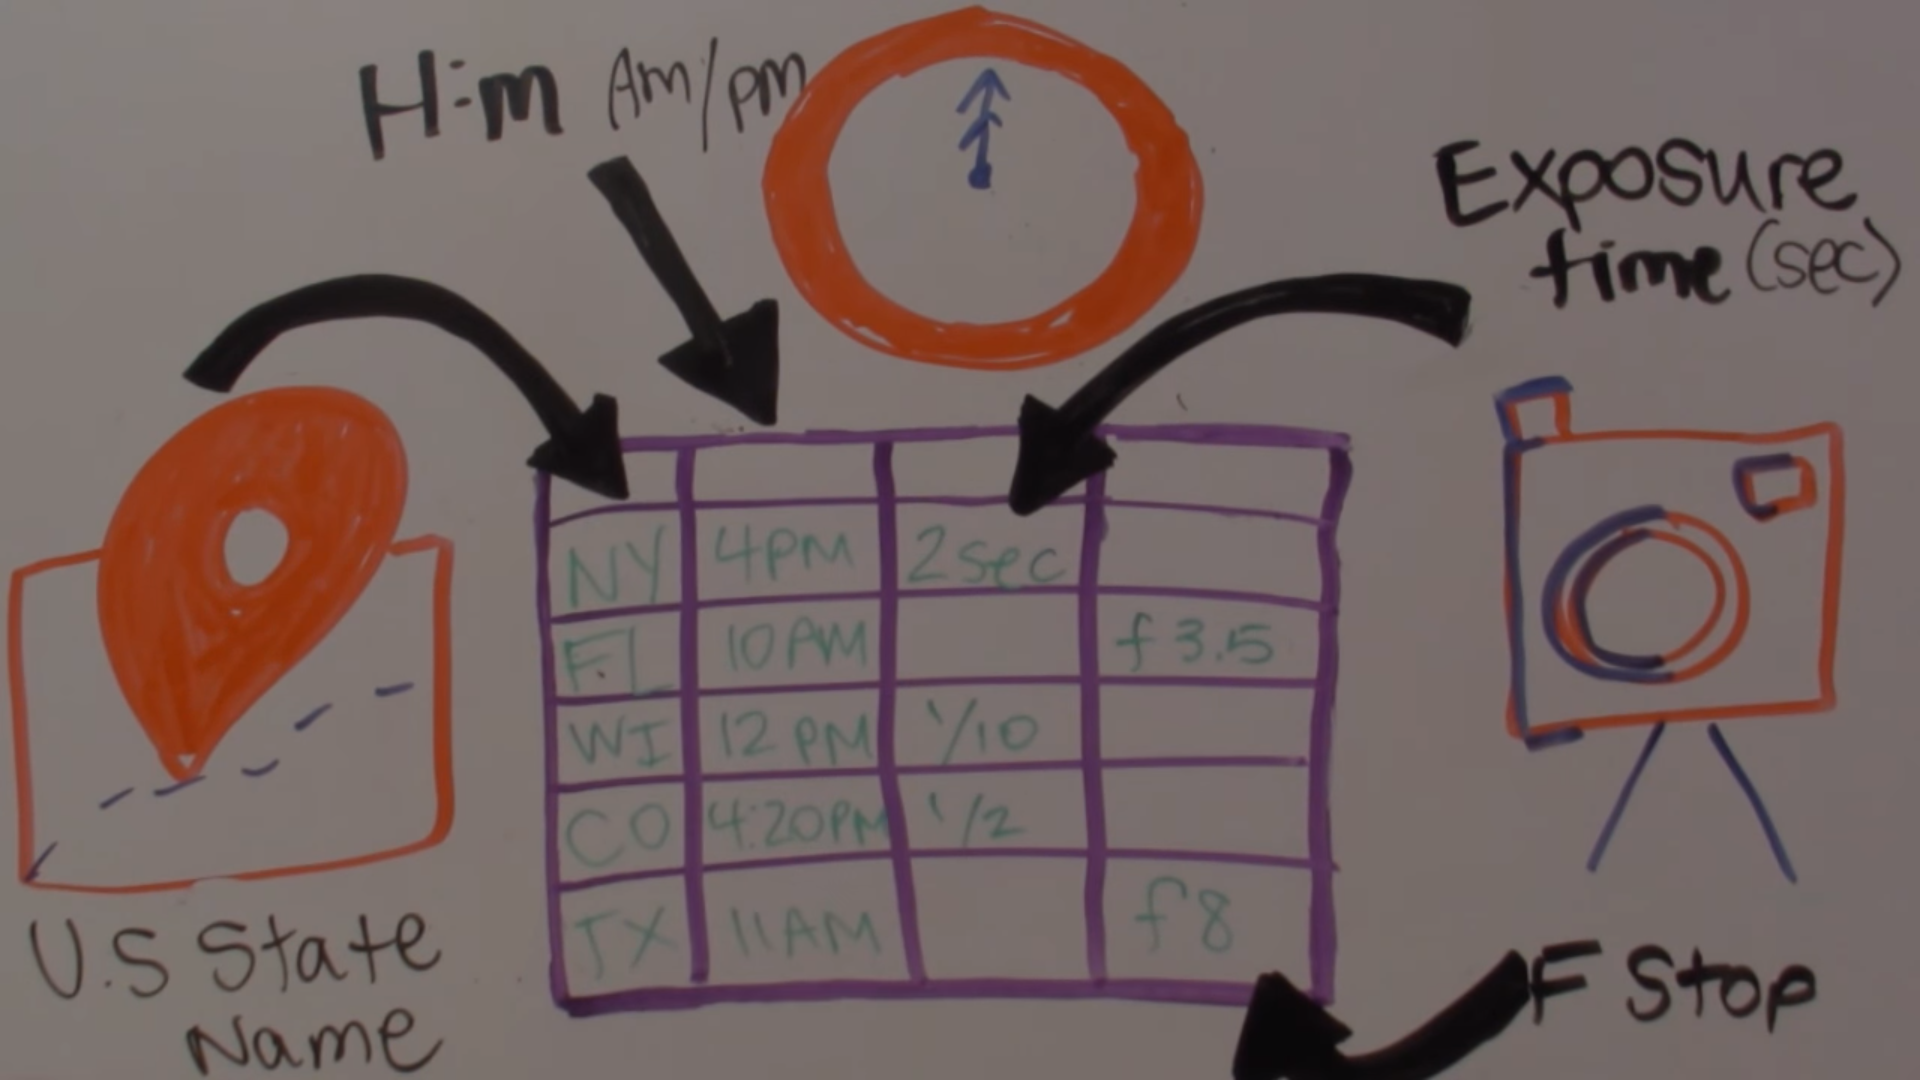 H:m Am/pm
Exposure
time (sec)
NY 4PM 2sec
FL 10AM f3.5
WI 12PM 1/10
CO 4:20PM 1/2
TX 11AM f8
U.S State
Name
F Stop